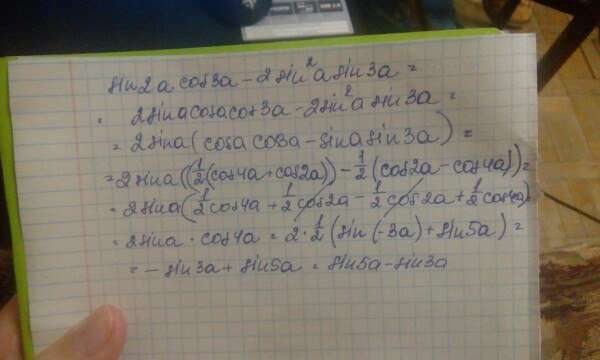 sin2a cos3a - 2sin²a sin3a =
= 2sina cosa cos3a - 2sin²a sin3a =
= 2sina(cosa cos3a - sina sin3a) =
= 2sina((½(cos4a + cos2a)) - ½(cos2a - cos4a)) =
= 2sina(½cos4a + ½cos2a - ½cos2a + ½cos4a)
= 2sina · cos4a = 2·½(sin(-3a) + sin5a) =
= - sin3a + sin5a = sin5a - sin3a